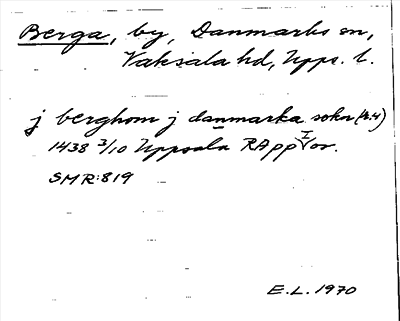 Berga, by, Danmarks sn,
Vaksala hd, Upps. l.
j berghom j danmarka sokn (B.4)
1438 3/10 Uppsala RApp or.
SMR:819
E.L. 1970